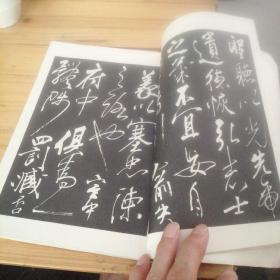 聖聽以光先帝
遺德恢弘志士
之氣不宜妄自
喻失
義以塞忠諫
之路也宮中
府中俱為一
體陟罰臧否